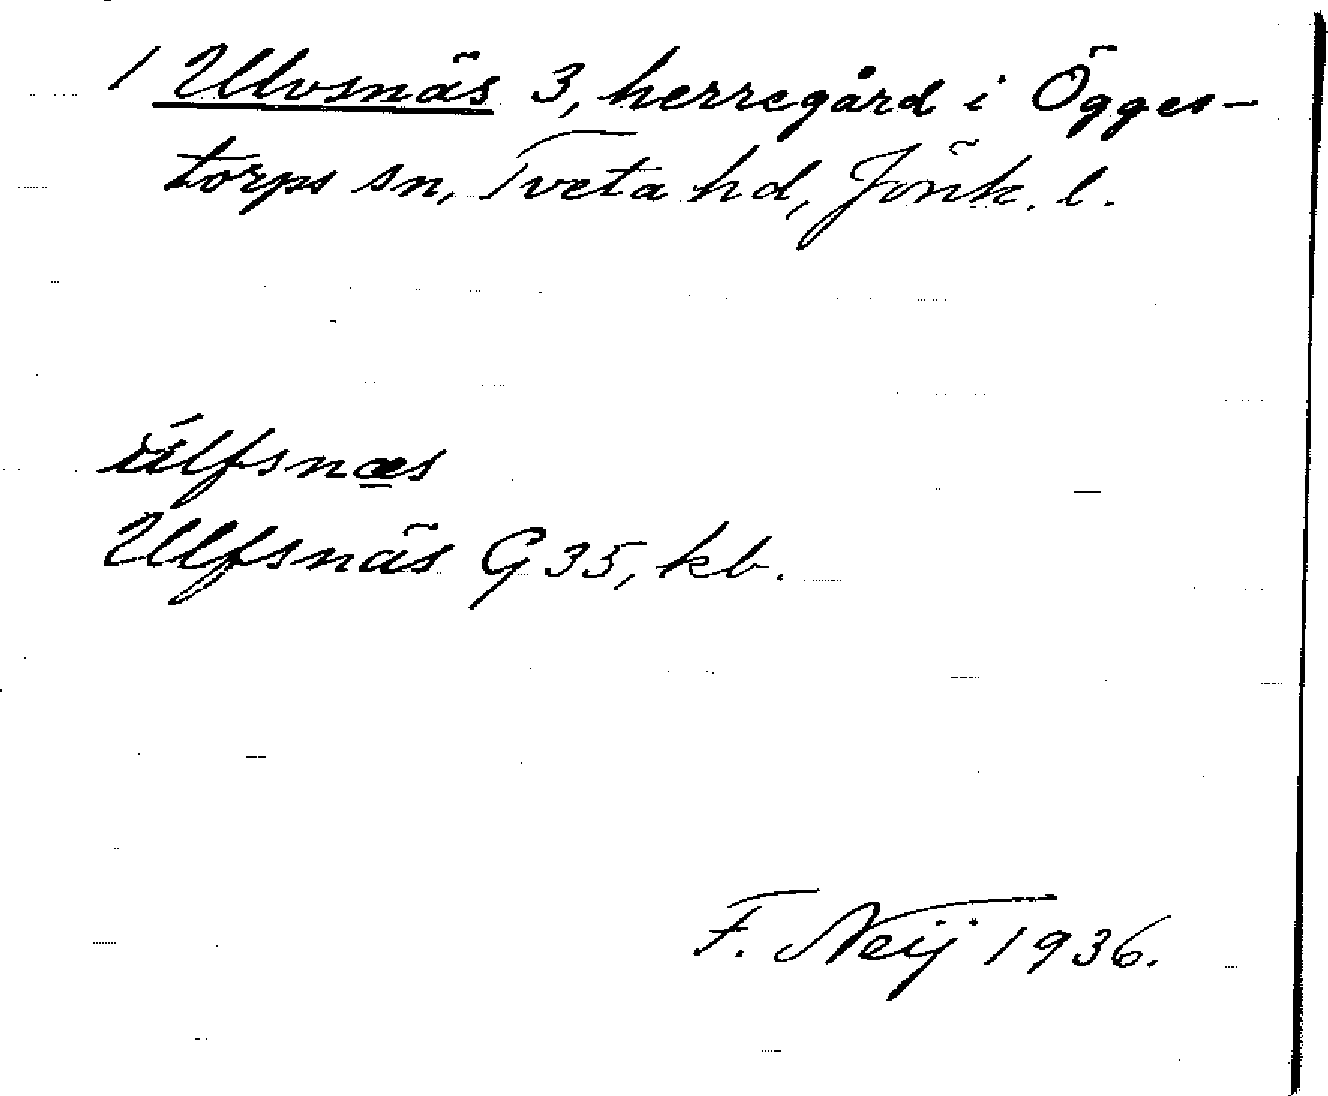 1 Ulvsnäs 3, herregård i Ögges-
torps sn, Tveta hd, Jönk. l.
úlfsnæs
Ulfsnäs G 35, kb.
F. Neij 1936.